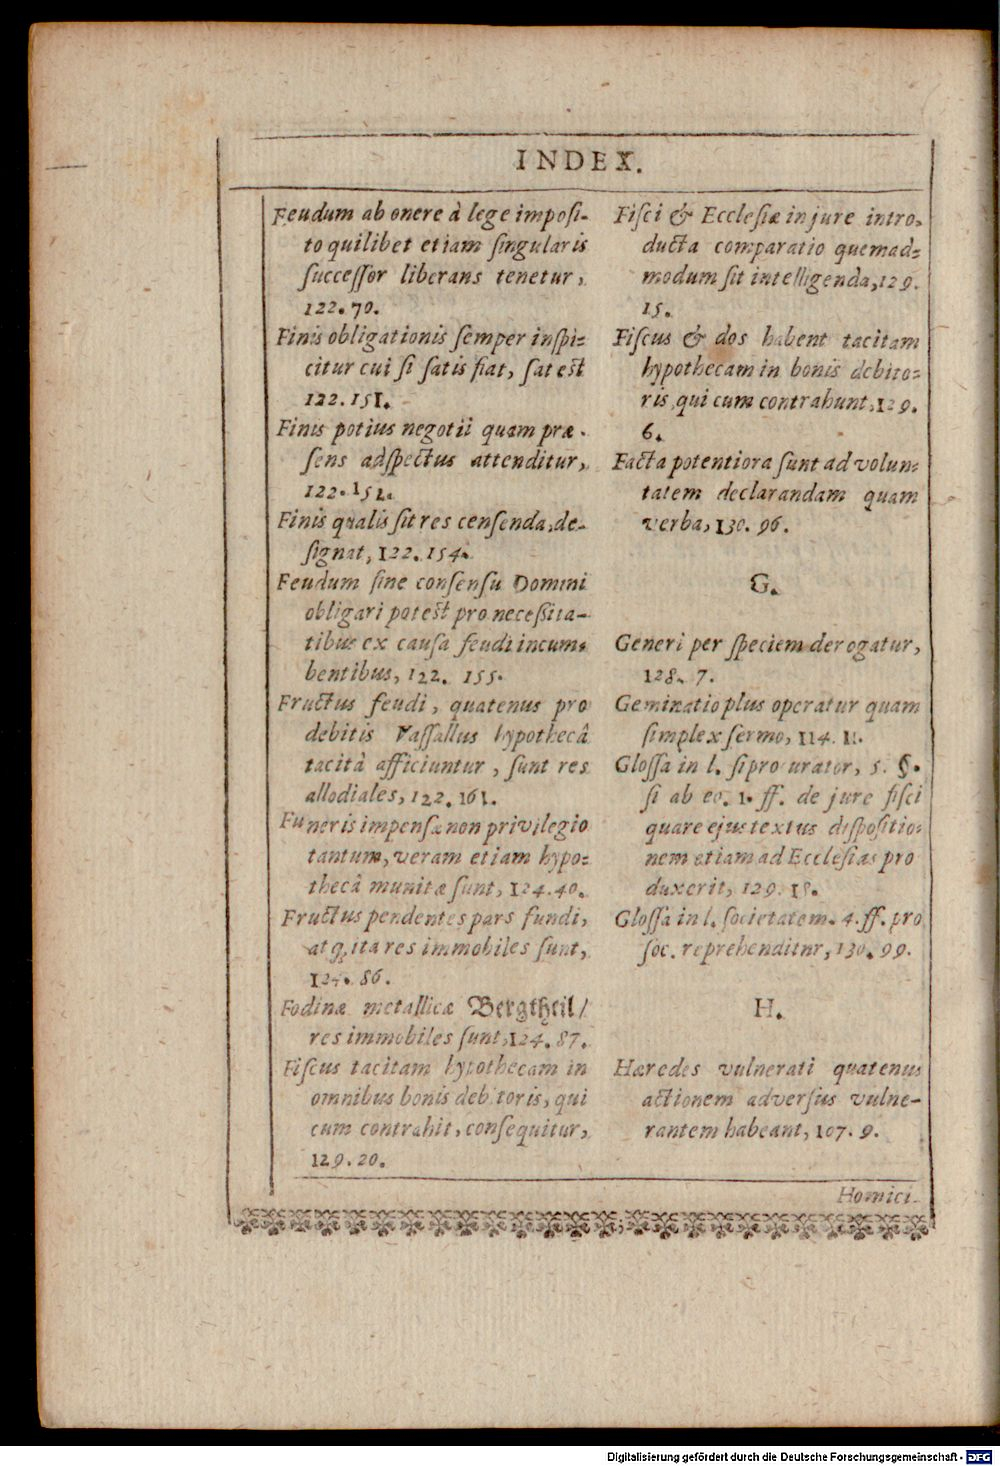 INDEX.
Feudum ab onere à lege imposi-
to quilibet etiam singularis
successor liberans tenetur,
122. 70.
Finis obligationis semper inspi-
citur cui si satis fiat, sat est
122. 151.
Finis potius negotii quam præ-
sens adspectus attenditur,
122. 151.
Finis qualis sit res censenda, de-
signat, 122. 154.
Feudum sine consensu Domini
obligari potest pro necessita-
tibus ex causa feudi incum-
bentibus, 122. 155.
Fructus feudi, quatenus pro
debitis Vassallus hypothecâ
tacitâ afficiuntur, sunt res
allodiales, 122. 161.
Funeris impensæ non privilegio
tantum, veram etiam hypo-
thecâ munitæ sunt, 124. 40.
Fructus pendentes pars fundi,
atq; ita res immobiles sunt,
124. 86.
Fodinæ metallicæ Bergtheil/
res immobiles sunt, 124. 87.
Fiscus tacitam hypothecam in
omnibus bonis debitoris, qui
cum contrahit, consequitur,
129. 20.
Fisci & Ecclesiæ in jure intro-
ducta comparatio quemad-
modum sit intelligenda, 129.
15.
Fiscus & dos habent tacitam
hypothecam in bonis debito-
ris, qui cum contrahunt, 129.
6.
Facta potentiora sunt ad volun-
tatem declarandam quam
verba, 130. 96.
G.
Generi per speciem derogatur,
128. 7.
Geminatio plus operatur quam
simplex sermo, 114. 11.
Glossa in l. si procurator, 5. §.
si ab eo. 1. ff. de jure fisci
quare ejus textus dispositio-
nem etiam ad Ecclesias pro
duxerit, 129. 18.
Glossa in l. societatem. 4. ff. pro
soc. reprehenditur, 130. 99.
H.
Hæredes vulnerati quatenus
actionem adversus vulne-
rantem habeant, 107. 9.
Homici-
Digitalisierung gefördert durch die Deutsche Forschungsgemeinschaft - DFG